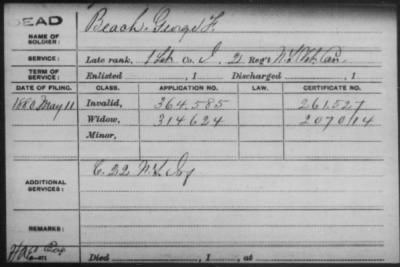 DEAD
NAME OF SOLDIER: Beach, George F.
SERVICE: Late rank, 1 Lt. Co. I, 21 Reg't N.Y. Vet. Cav.
TERM OF SERVICE: Enlisted , 1 Discharged , 1
DATE OF FILING. CLASS. APPLICATION NO. LAW. CERTIFICATE NO.
1880 May 11 Invalid, 364.585 261.527
Widow, 314624 207014
Minor,
ADDITIONAL SERVICES: C. 22 N.Y. Inf
REMARKS:
Died , 1 , at